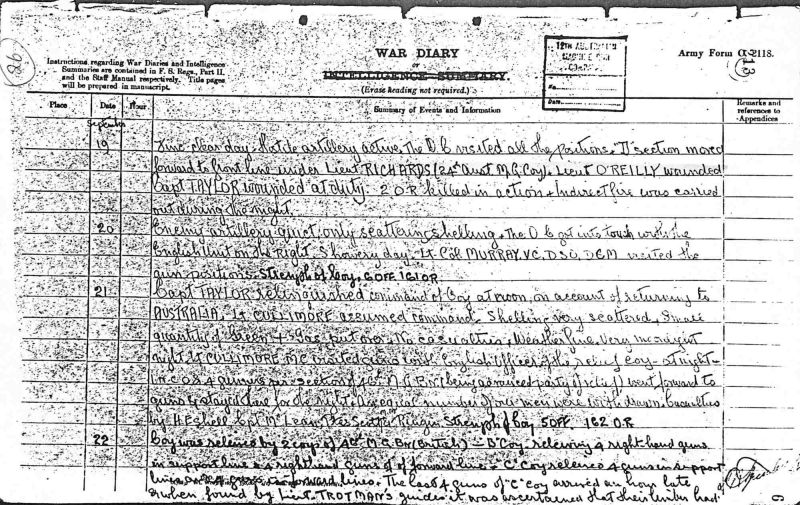 98
Instructions regarding War Diaries and Intelligence
Summaries are contained in F. S. Regs., Part II.
and the Staff Manual respectively. Title pages
will be prepared in manuscript.
WAR DIARY
or
INTELLIGENCE SUMMARY.
(Erase heading not required.)
12TH AUSTRALIAN
MACHINE GUN
COMPANY
No.
Date
Army Form C. 2118.
Place Date Hour Summary of Events and Information Remarks and references to Appendices
September
19 Fine clear day. Hostile artillery active. The O.C. visited all the positions. "D" section moved
forward to front line under Lieut RICHARDS (24th Aust M.G. Coy). Lieut O'REILLY wounded
Capt TAYLOR wounded at duty. 2 O.R. killed in action. Indirect fire was carried
out during the night.
20 Enemy artillery quiet, only scattering shelling. The O.C. got into touch with the
English Unit on the Right. Showery day. Lt Col MURRAY. VC. DSO. DCM visited the
gun positions. Strength of Coy. 6 OFF. 161 OR
21 Capt TAYLOR relinquished command of Coy at noon, on account of returning to
AUSTRALIA. Lt CULLIMORE assumed command. Shelling very scattered, small
quantity of Green + Gas put over. No casualties. Weather fine. Very moonlight
night. Lt CULLIMORE MC visited guns with English Officer of the relief coy at night
1 N.C.O. & 4 gunners per section of M.G. Bn (being advanced party of relief) went forward to
guns & stayed there for the night. An equal number of our men were withdrawn. Casualties
by H.E. shell Cpl McLean, Ptes Strength of Coy 5 OFF. 162 O.R
22 Coy was relieved by 2 coys of M.G. Bn (British) - "B" Coy relieving 4 right hand guns
in support line & 4 right hand guns of forward line & "C" Coy relieved 4 guns in support
line & 4 guns in forward line. The last 4 guns of "C" Coy arrived an hour late
& when found by Lieut TROTMAN'S guides it was ascertained that their limber had